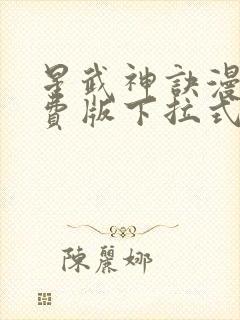 星武神訣漫
費版下拉式
陳麗娜